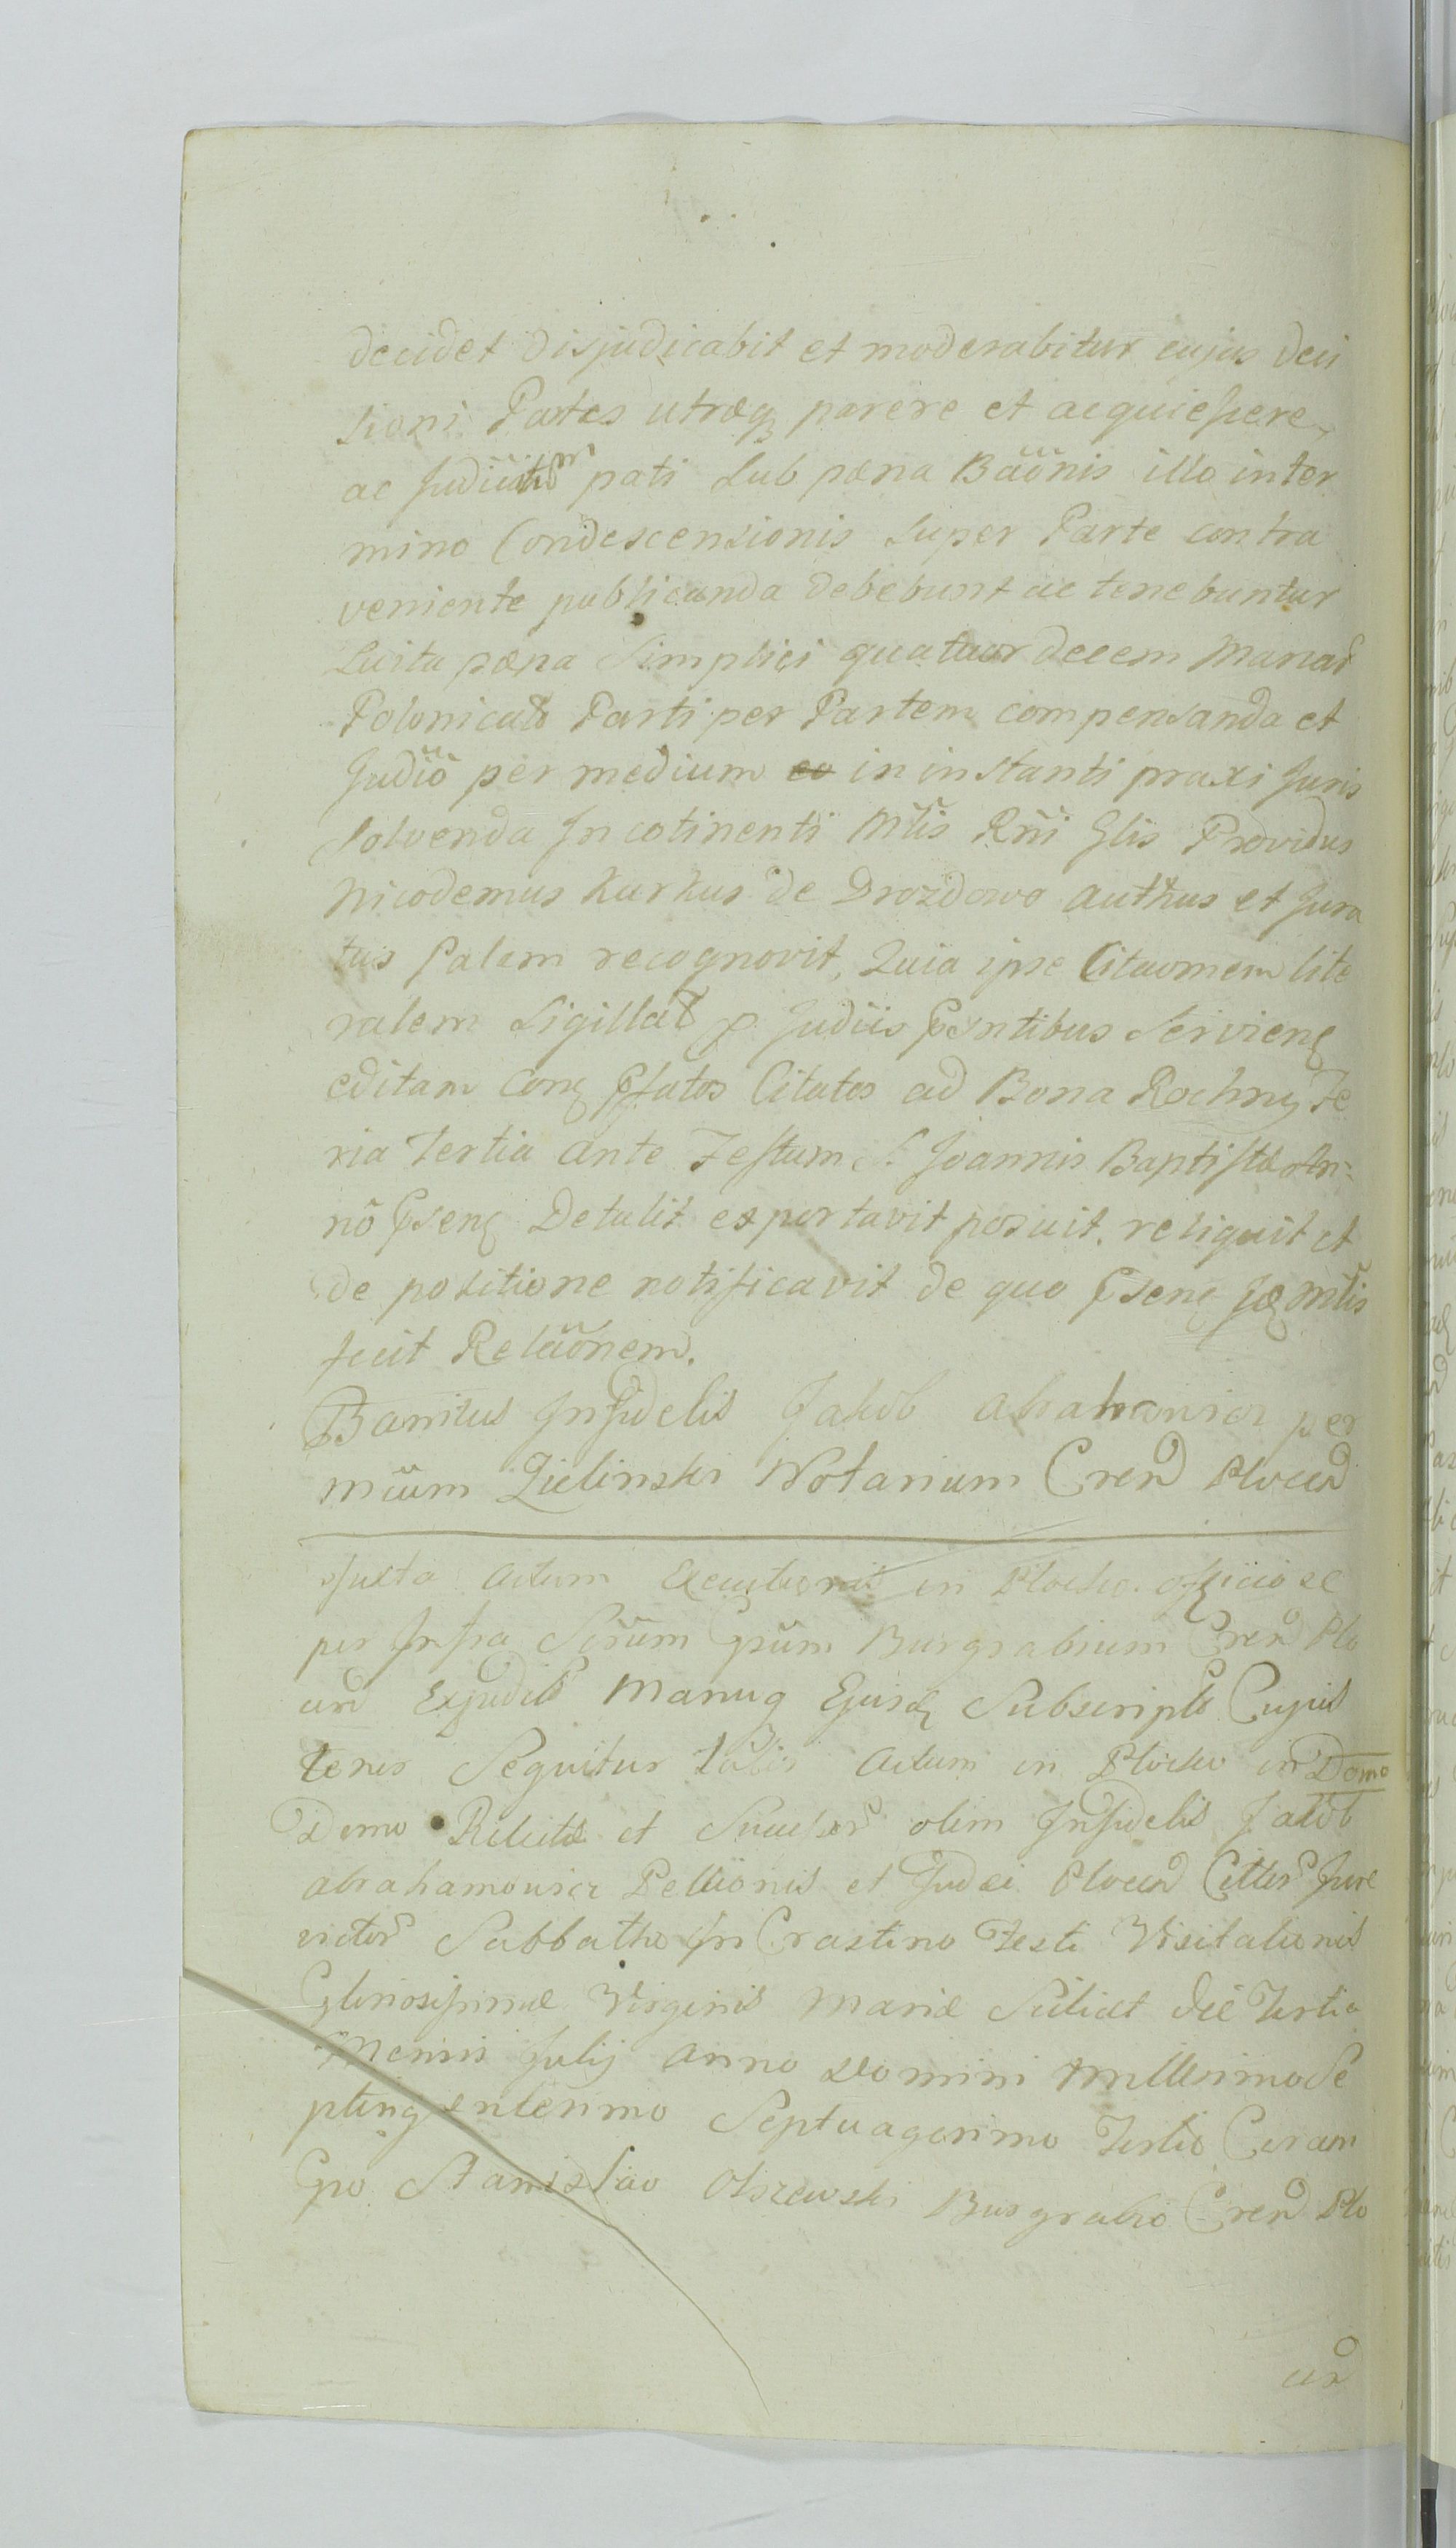 decidet disjudicabit et moderabitur cujus deci
sioni Partes utræq parere et acquiescere
ac pati sub pæna Bäönis illo inter
mino Condescensionis super Parte contra
veniente publicanda debebunt ac tenebuntur
Luita pæna simplici quatuor decem
Polonical Parti per Partem compensanda et
Judiö per medium in instanti praxi Juris
solvenda In cotinenti Mtis Rñi Glis Providus
Nicodemus Kurkus de Drozdowo Authus et Jura
tus Palam recognovit, Quia ipse lite
ralem Judiis
editam Citatos ad Bona
ria Tertia ante Festum S. Joannis Baptistæ An-
nõ Detulit exportavit posuit, reliquit et
de positione notificavit de quo Mtis
fecit Relaönem.
Banitus Infidelis Jakob Abrahamowicz per
Mcum Zielinski Notarium Cren Plocen
Juxta Actum Executionis in Plocko officiose
per Infra Scrum Grüm Burgrabium Cren Plo
cen Manuq Ejusd Subscript Cujus
tenor Sequitur talis Actum in Plocko in Domo
Domo Relictæ et olim Infidelis Jakob
Abrahamowicz Pellionis et Judæi Plocen Jure
victor Sabbatho In Crastino Festi Visitationis
Gloriosissimæ Virginis Mariæ Scilicet die Tertia
Mensis Julij Anno Domini Millesimo Se
ptingentesimo Septuagesimo Tertio Coram
Gro Stanislao Olszewski Burgrabio Cren Plo
cen